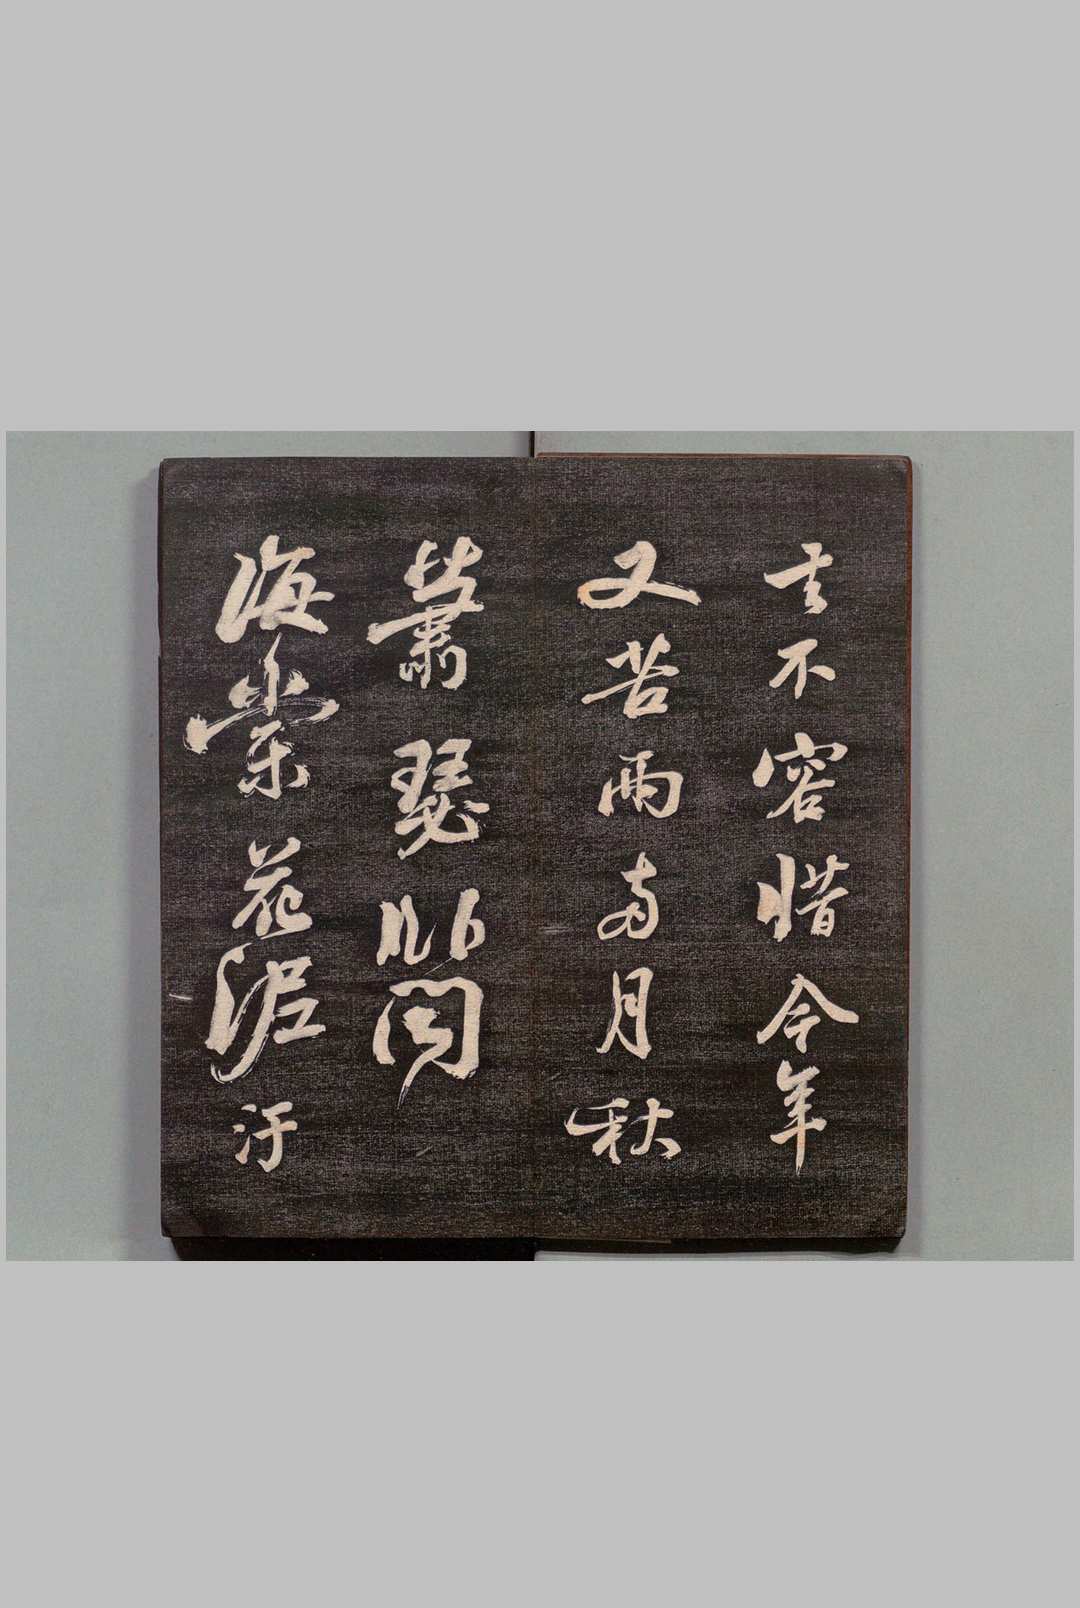 去不容惜今年
又苦雨兩月秋
蕭瑟臥聞
海棠花泥汙